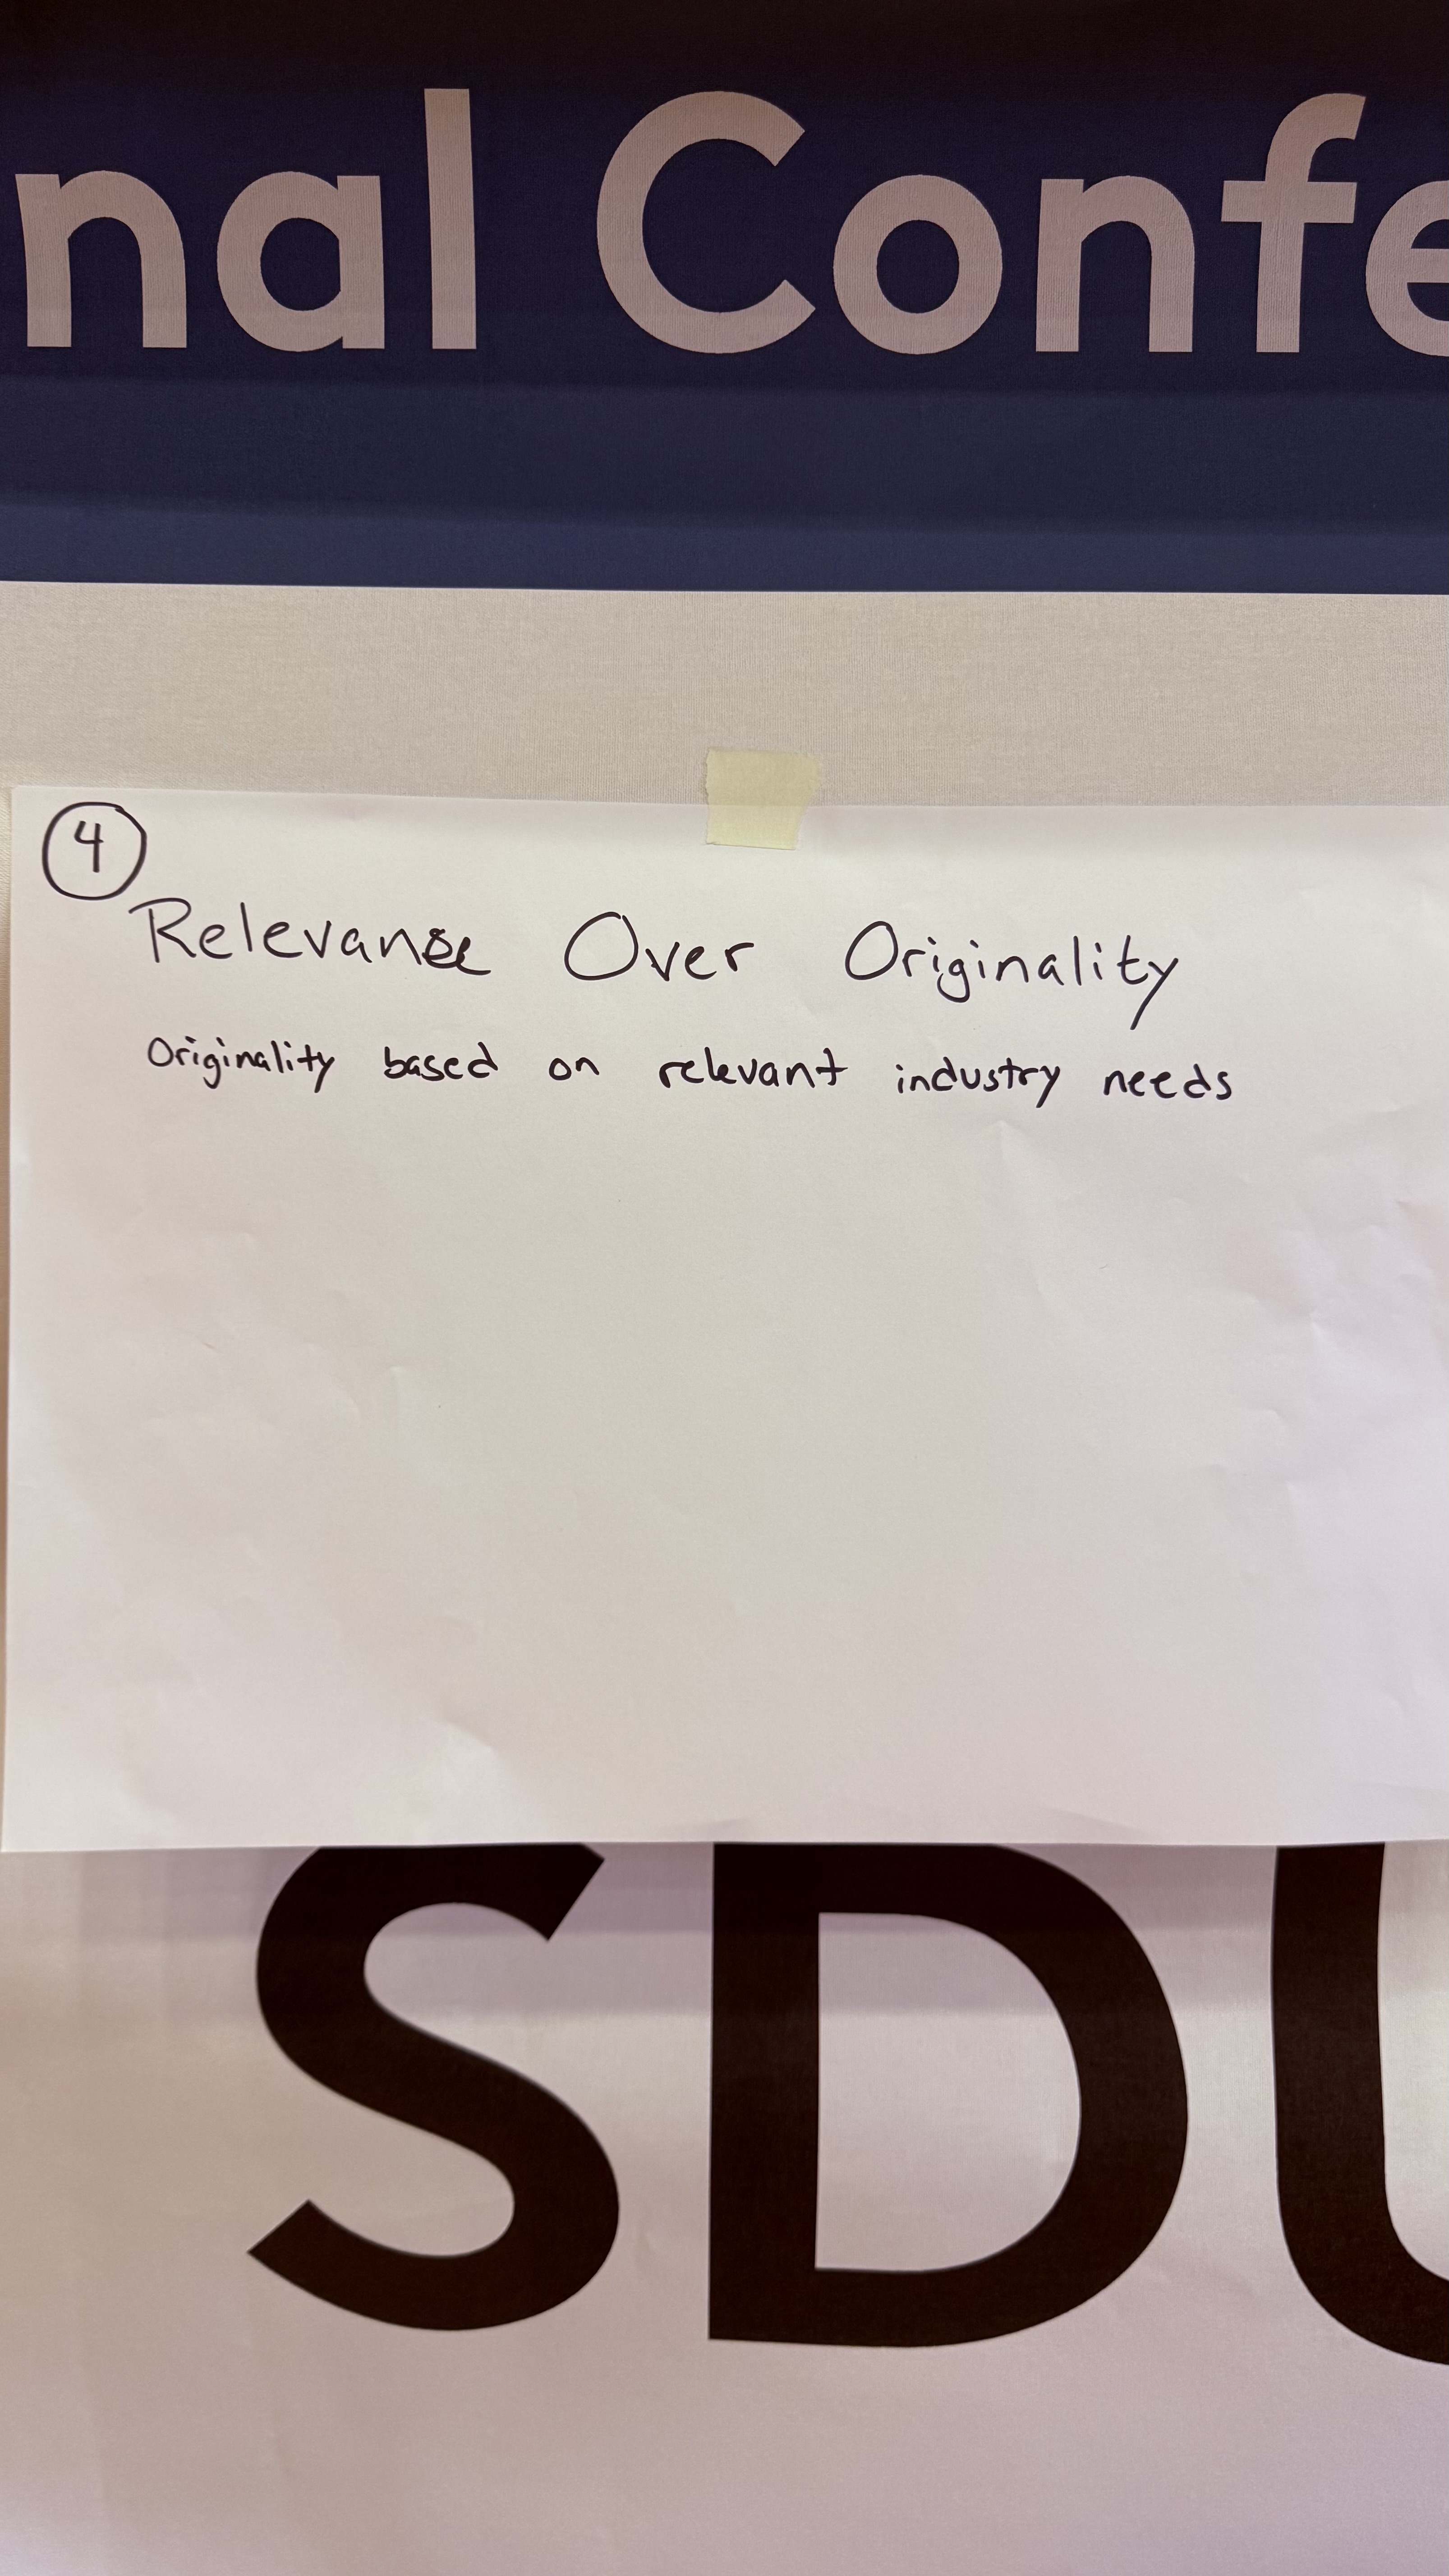 nal Confe
4
Relevance Over Originality
Originality based on relevant industry needs
SDU